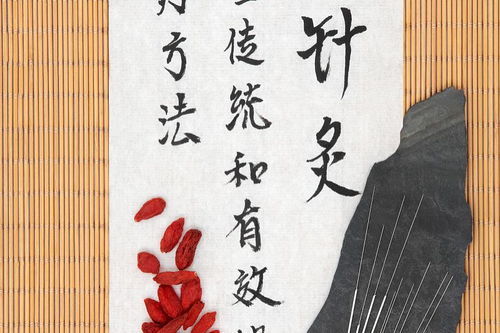 针灸
传统和有效
方法